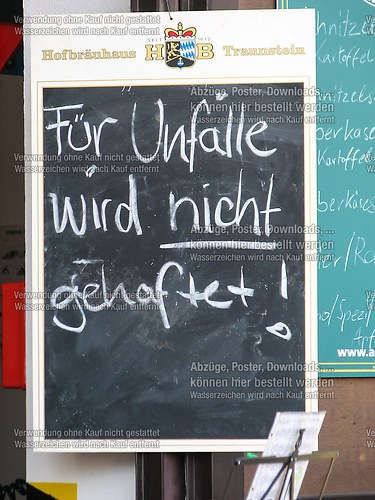 SEIT 1612
Hofbräuhaus HB Traunstein
Für Unfälle
wird nicht
gehaftet!
hnitze
kartoffel
Kartoffel
www.a
Verwendung ohne Kauf nicht gestattet
Wasserzeichen wird nach Kauf entfernt
Abzüge, Poster, Downloads,...
können hier bestellt werden
Wasserzeichen wird nach Kauf entfernt
Verwendung ohne Kauf nicht gestattet
Wasserzeichen wird nach Kauf entfernt
Abzüge, Poster, Downloads,...
können hier bestellt werden
Wasserzeichen wird nach Kauf entfernt
Verwendung ohne Kauf nicht gestattet
Wasserzeichen wird nach Kauf entfernt
Abzüge, Poster, Downloads,...
können hier bestellt werden
Wasserzeichen wird nach Kauf entfernt
Verwendung ohne Kauf nicht gestattet
Wasserzeichen wird nach Kauf entfernt